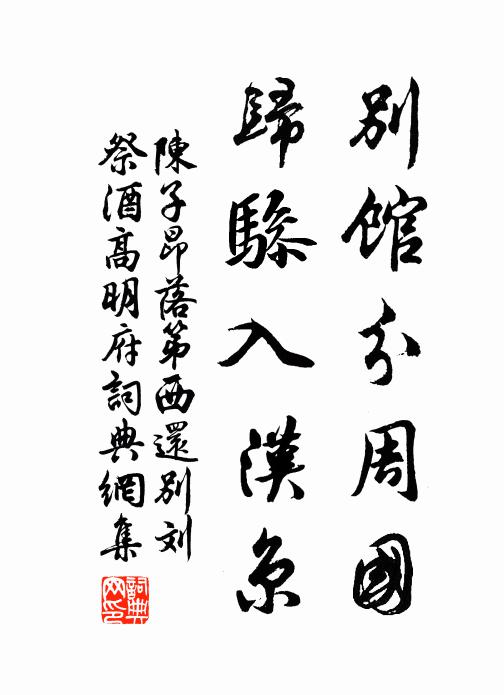 別館分周國
歸驂入漢京
陳子昂落第西還別刘
祭酒高明府詞典網集
詞典
网印